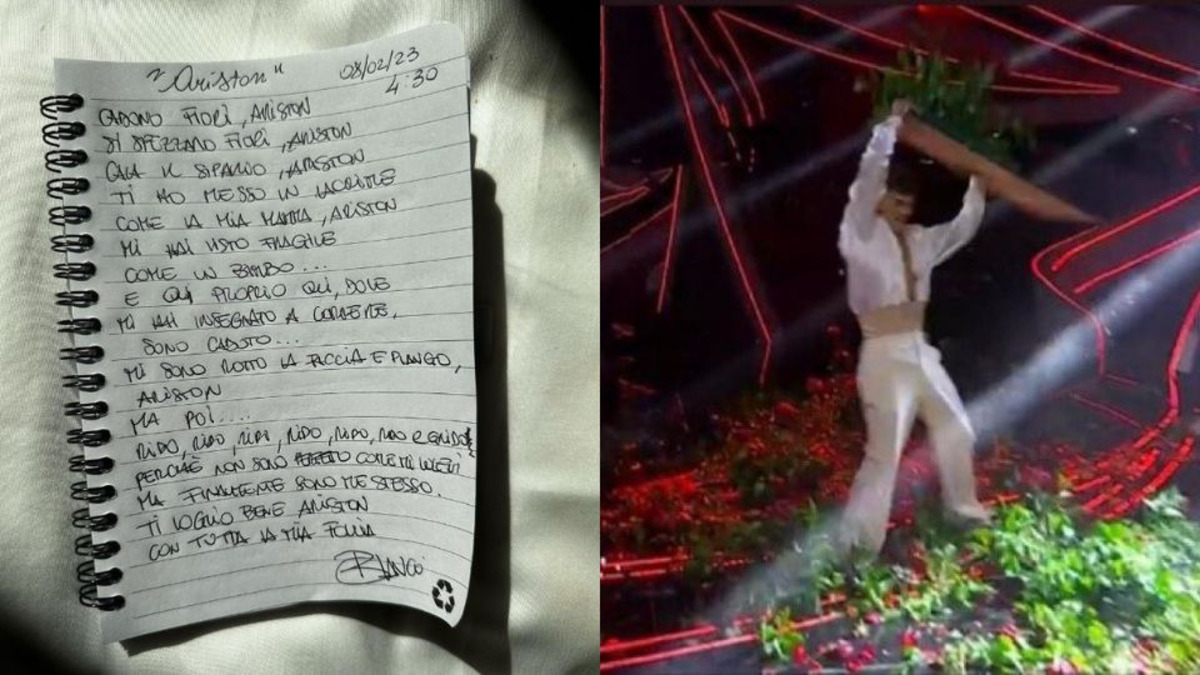 "Ariston" 08/02/23
4:30
CADONO FIORI, ARISTON
SI SPEZZANO FIORI, ARISTON
CALA IL SIPARIO, ARISTON
TI HO MESSO IN LACRIME
COME LA MIA MAMMA, ARISTON
MI HAI VISTO FRAGILE
COME UN BIMBO...
E QUI PROPRIO QUI, DOVE
MI HAI INSEGNATO A CORRERE,
SONO CADUTO...
MI SONO ROTTO LA FACCIA E PIANGO,
ARISTON
MA POI....
RIDO, RIDO, RIDO, RIDO, RIDO, RIDO E GRIDO
PERCHÈ NON SONO COME MI VOLEVI
MA FINALMENTE SONO ME STESSO.
TI VOGLIO BENE ARISTON
CON TUTTA LA MIA FOLLIA
BLANCO